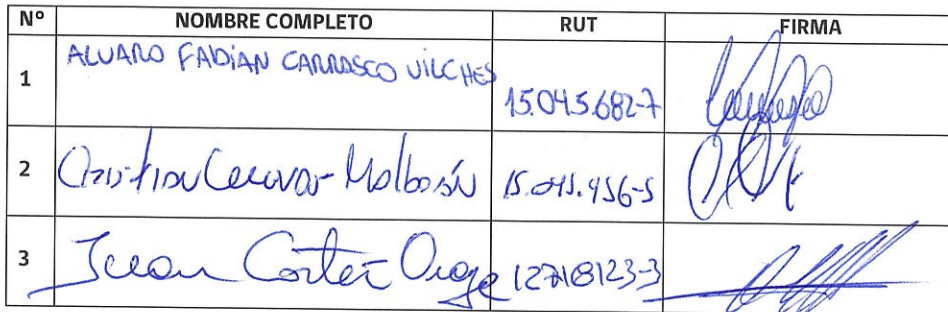 Nº NOMBRE COMPLETO RUT FIRMA
1 ALVARO FABIAN CARRASCO VILCHES 15.045.682-7
2 Cristian 15.041.456-5
3 Juan Cortez 12718123-3